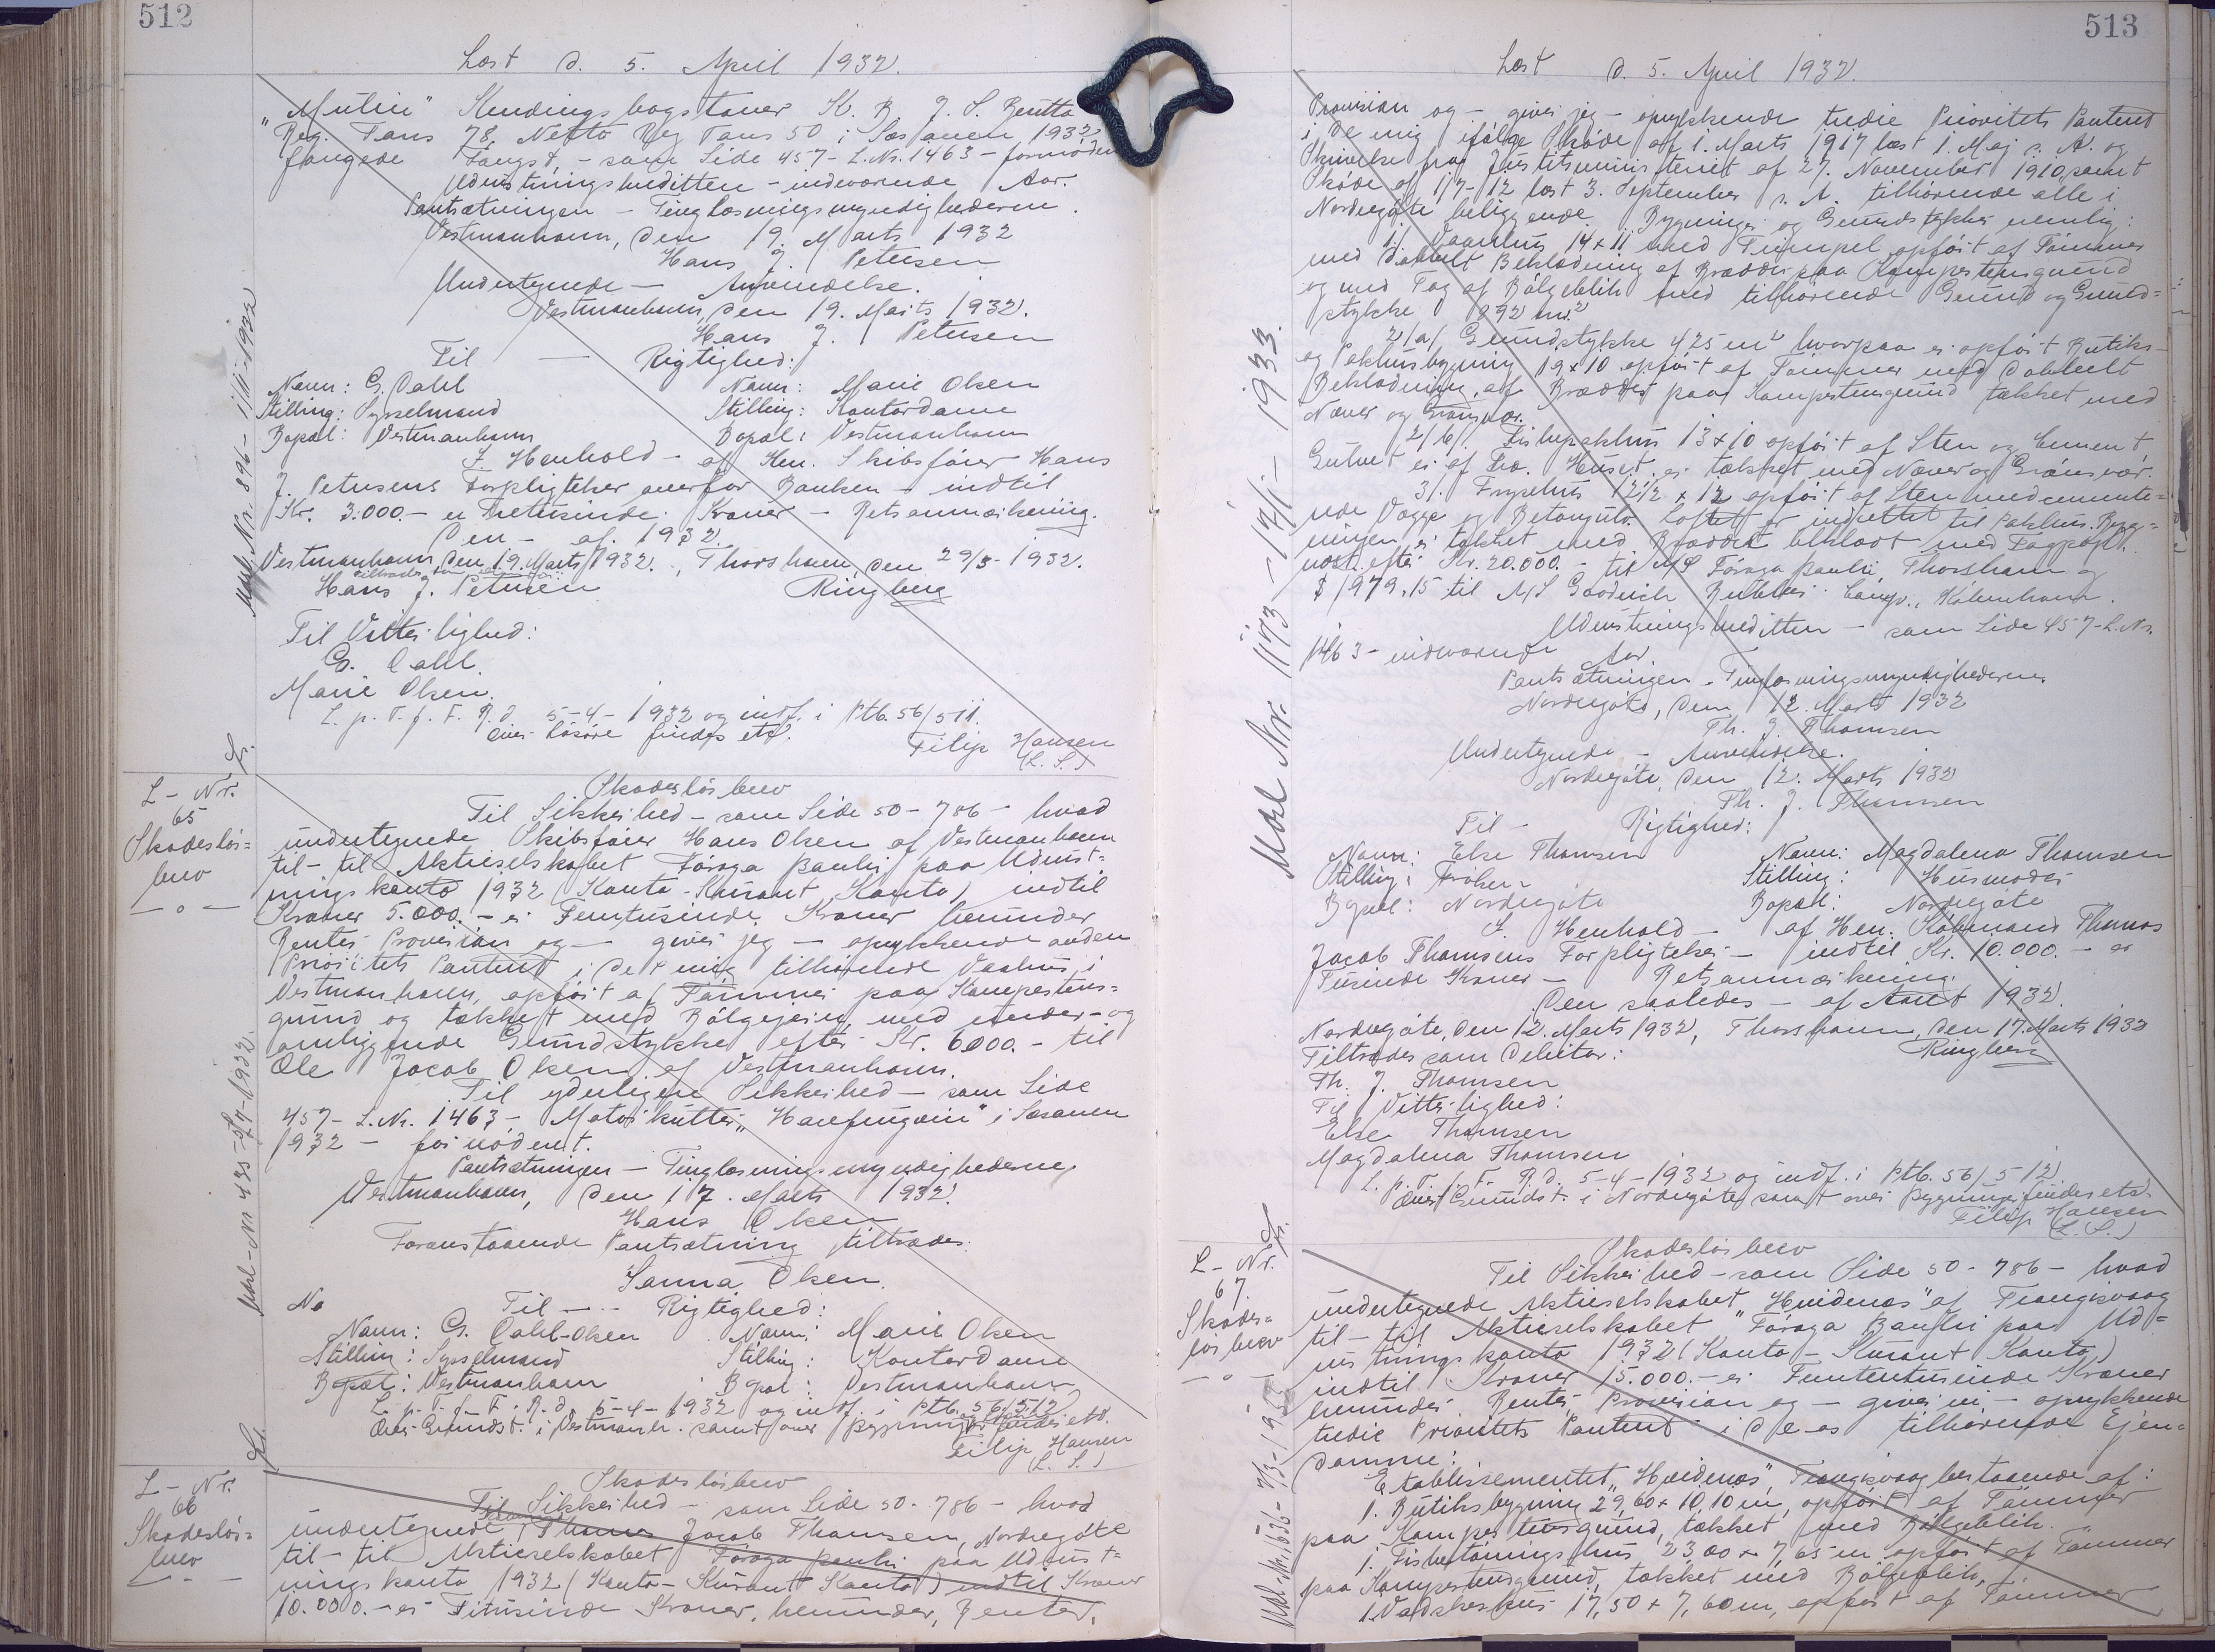 512
Læst d. 5. April 1932.
"Mutin" Kendingsbogstaver K. B. J. S. Brutto
Reg. Tons 78, Netto Reg Tons 50 i Sæsonen 1932
fangede Fangst, - som Side 457 - L.Nr. 1463 - fornøden
Udrustningskreditten - indeværende Aar.
Pantsætningen - Tinglæsningsmyndighederne.
Vestmanhavn, den 19. Marts 1932
Hans J. Petersen
Undertegnede - Anvendelse.
Vestmanhavn, den 19. Marts 1932.
Hans J. Petersen
Til - Rigtighed:
Navn: G. Dahl Navn: Marie Olsen
Stilling: Sysselmand Stilling: Kontordame
Bopæl: Vestmanhavn Bopæl: Vestmanhavn
I Henhold - af Hrn. Skibsfører Hans
J. Petersens Forpligtelser overfor Banken - indtil
Kr. 3.000. - er Tretusinde Kroner - Retsanmærkning.
Den - af 1932.
Vestmanhavn, den 19. Marts 1932., Thorshavn, den 29/3 - 1932.
Hans J. Petersen Ringberg
Til Vitterlighed:
G. Dahl.
Marie Olsen.
L. p. T. f. F. R. d. 5-4-1932 og indf. i Ptb. 56/511.
Over Løsøre findes etc.
Filip Hansen
(L. S.)
Udsl. Nr. 896 - 1932
L - Nr.
65
Skadesløs=
brev
Skadesløsbrev
Til Sikkerhed - som Side 50 - 786 - hvad
undertegnede Skibsfører Hans Olsen af Vestmanhavn
til - til Aktieselskabet Føroya Banki paa Udrust=
ningskonto 1932 (Konto-Kurant Konto) indtil
Kroner 5.000. - er Femtusinde Kroner herunder
Renter Provision og - giver jeg - oprykkende anden
Prioritets Panteret i det mig tilhørende Vaahus i
Vestmanhavn, opført af Tømmer paa Kampestens=
grund og tækket med Bølgejern med under- og
omliggende Grundstykke efter Kr. 6000. - til
Ole Jacob Olsen af Vestmanhavn.
Til yderligere Sikkerhed - som Side
457 - L.Nr. 1463 - Motorkutter "Havfrugvin" i Sæsonen
1932 - fornødent.
Pantsætningen - Tinglæsningsmyndighederne,
Vestmanhavn, den 17. Marts 1932.
Hans Olsen
Foranstaaende Pantsætning tiltrædes:
Sanna Olsen.
No Til - - Rigtighed:
Navn: G. Dahl-Olsen Navn: Marie Olsen
Stilling: Sysselmand Stilling: Kontordame
Bopæl: Vestmanhavn Bopæl: Vestmanhavn
L. p. T. f. F. R. d. 5-4-1932 og indf. i Ptb. 56/512
Over Grundst. i Vestmanh. samt over Bygninger findes etc.
Filip Hansen
(L. S.)
L - Nr.
66
Skadesløs=
brev
Skadesløsbrev
Til Sikkerhed - som Side 50 - 786 - hvad
undertegnede Thomas Jacob Thomsen, Nordregøte
til - til Aktieselskabet Føroya Banki paa Udrust=
ningskonto 1932 (Konto-Kurant Konto) indtil Kroner
10.000. - er Titusinde Kroner, herunder, Renter,
513
Læst d. 5. April 1932.
Provision og - giver jeg - oprykkende tredie Prioritets Panteret
i de mig ifølge Skøde af 1. Marts 1917 læst 1. Maj s. A. og
Skrivelse fra Justitsministeriet af 27. November 1910, samt
Skøde af 1/7-12 læst 3. September s. A. tilhørende alle i
Nordregøte beliggende Bygninger og Grundstykker nemlig:
1. Vaanhus 14 x 11 med Trempel opført af Tømmer
med dobbelt Beklædning af Brædder paa Kampestensgrund
og med Tag af Bølgeblik med tilhørende Grund og Grund=
stykke 892 m.²
2/a/ Grundstykke 425 m² hvorpaa er opført Butiks-
og Pakhusbygning 19 x 10 opført af Tømmer med dobbelt
Beklædning af Brædder paa Kampestensgrund tækket med
Næver og Grønsvær.
2/b/. Fiskepakhus 13 x 10 opført af Sten og Cement,
Gulvet er af Træ. Huset er tækket med Næver og Grønsvær.
3/. Frysehus 12½ x 12 opført af Sten med cemente=
rede Vægge og Betongulv. Loftet er indrettet til Pakhus. Byg=
ningen er tækket med Brædder beklædt med Tagpap.
næst efter Kr. 20.000. - til A/S Føroya Banki, Thorshavn og
$ 1979.15 til A/S Goodrich Rubber Comp., København.
Udrustningskreditten - som Side 457 - L.Nr.
1463 - indeværende Aar.
Pantsætningen - Tinglæsningsmyndighederne.
Nordregøte, den 12. Marts 1932
Th. J. Thomsen
Undertegnede - Anvendelse.
Nordregøte, den 12. Marts 1932
Th. J. Thomsen
Til - Rigtighed:
Navn: Else Thomsen Navn: Magdalena Thomsen
Stilling: Frøken Stilling: Husmoder
Bopæl: Nordregøte Bopæl: Nordregøte
I Henhold - af Hrn. Købmand Thomas
Jacob Thomsens Forpligtelser - indtil Kr. 10.000. - er
Titusinde Kroner - Retsanmærkning.
Den saaledes - af Aaret 1932.
Nordregøte, den 12. Marts 1932, Thorshavn, den 17. Marts 1932
Tiltrædes som Debitor: Ringberg
Th. J. Thomsen
Til Vitterlighed:
Else Thomsen
Magdalena Thomsen
L. p. T. f. F. R. d. 5-4-1932 og indf. i Ptb. 56/512
Over Grundst. i Nordregøte samt over Bygninger findes etc.
Filip Hansen
(L. S.)
L - Nr.
67.
Skades=
løsbrev
Skadesløsbrev
Til Sikkerhed - som Side 50 - 786 - hvad
undertegnede Aktieselskabet "Hvidenæs" af Trangisvaag
til - til Aktieselskabet "Føroya Banki paa Ud=
rustningskonto 1932 (Konto-Kurant Konto)
indtil Kroner 15.000. - er Femtentusinde Kroner
herunder Renter, Provision og - giver vi - oprykkende
tredie Prioritets Panteret i de os tilhørende Ejen=
domme:
Etablissementet "Hvidenæs", Trangisvaag bestaaende af:
1. Butiksbygning 29,60 x 10,10 m, opført af Tømmer
paa Kampestensgrund, tækket med Bølgeblik.
1. Fisketørringshus 23,00 x 7,65 m opført af Tømmer
paa Kampestensgrund, tækket med Bølgeblik,
1. Vadskehus 17,50 x 7,60 m, opført af Tømmer